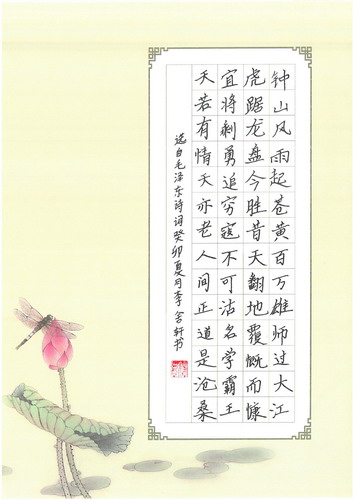 钟山风雨起苍黄百万雄师过大江
虎踞龙盘今胜昔天翻地覆慨而慷
宜将剩勇追穷寇不可沽名学霸王
天若有情天亦老人间正道是沧桑
选自毛泽东诗词癸卯夏月李含轩书